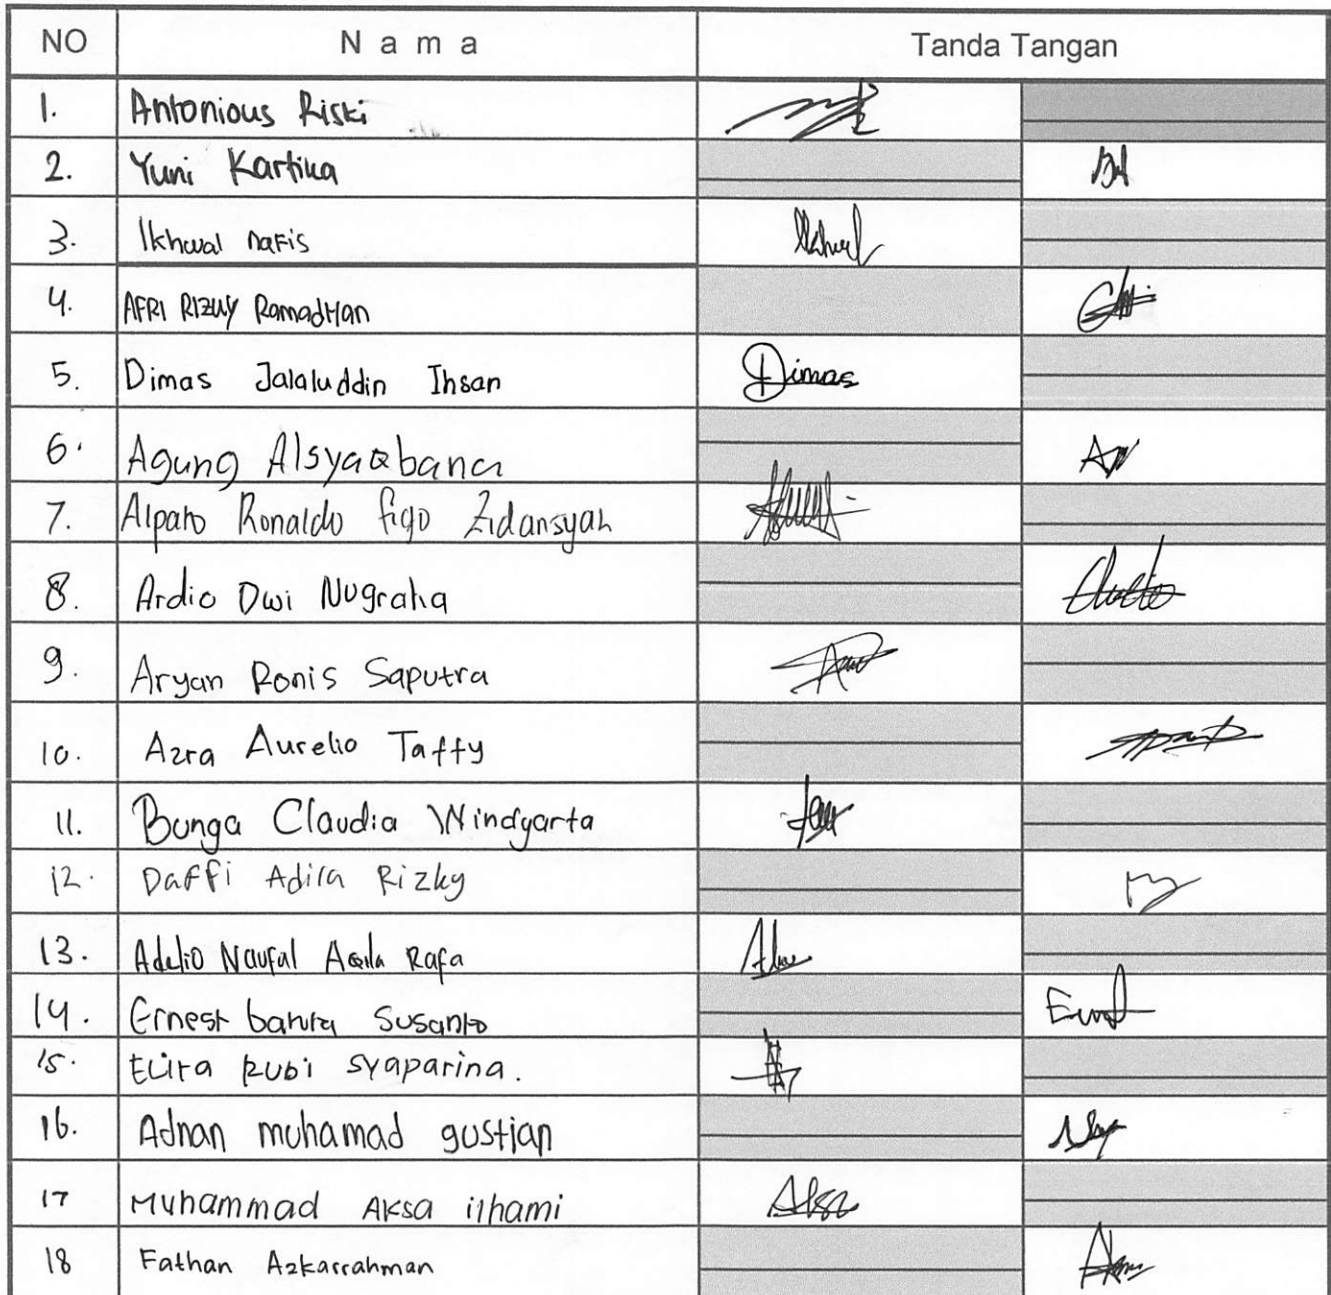 NO Nama Tanda Tangan
1. Antonious Riski
2. Yuni Kartika
3. Ikhwal nafis
4. AFRI RIZKY RamadHan
5. Dimas Jalaluddin Ihsan Dimas
6. Agung
7. Ronaldo figo Zidansyah
8. Ardio Dwi Nugraha
9. Aryan Ronis Saputra
10. Azra Aurelio Taffy
11. Bunga Claudia Windyarta
12. Daffi Adila Rizky
13. Adelio Naufal Aqila Rafa
14. Ernest Susanto
15. Rubi syaparina.
16. Adnan muhamad gustian
17 Muhammad Aksa ilhami
18 Fathan Azkarrahman